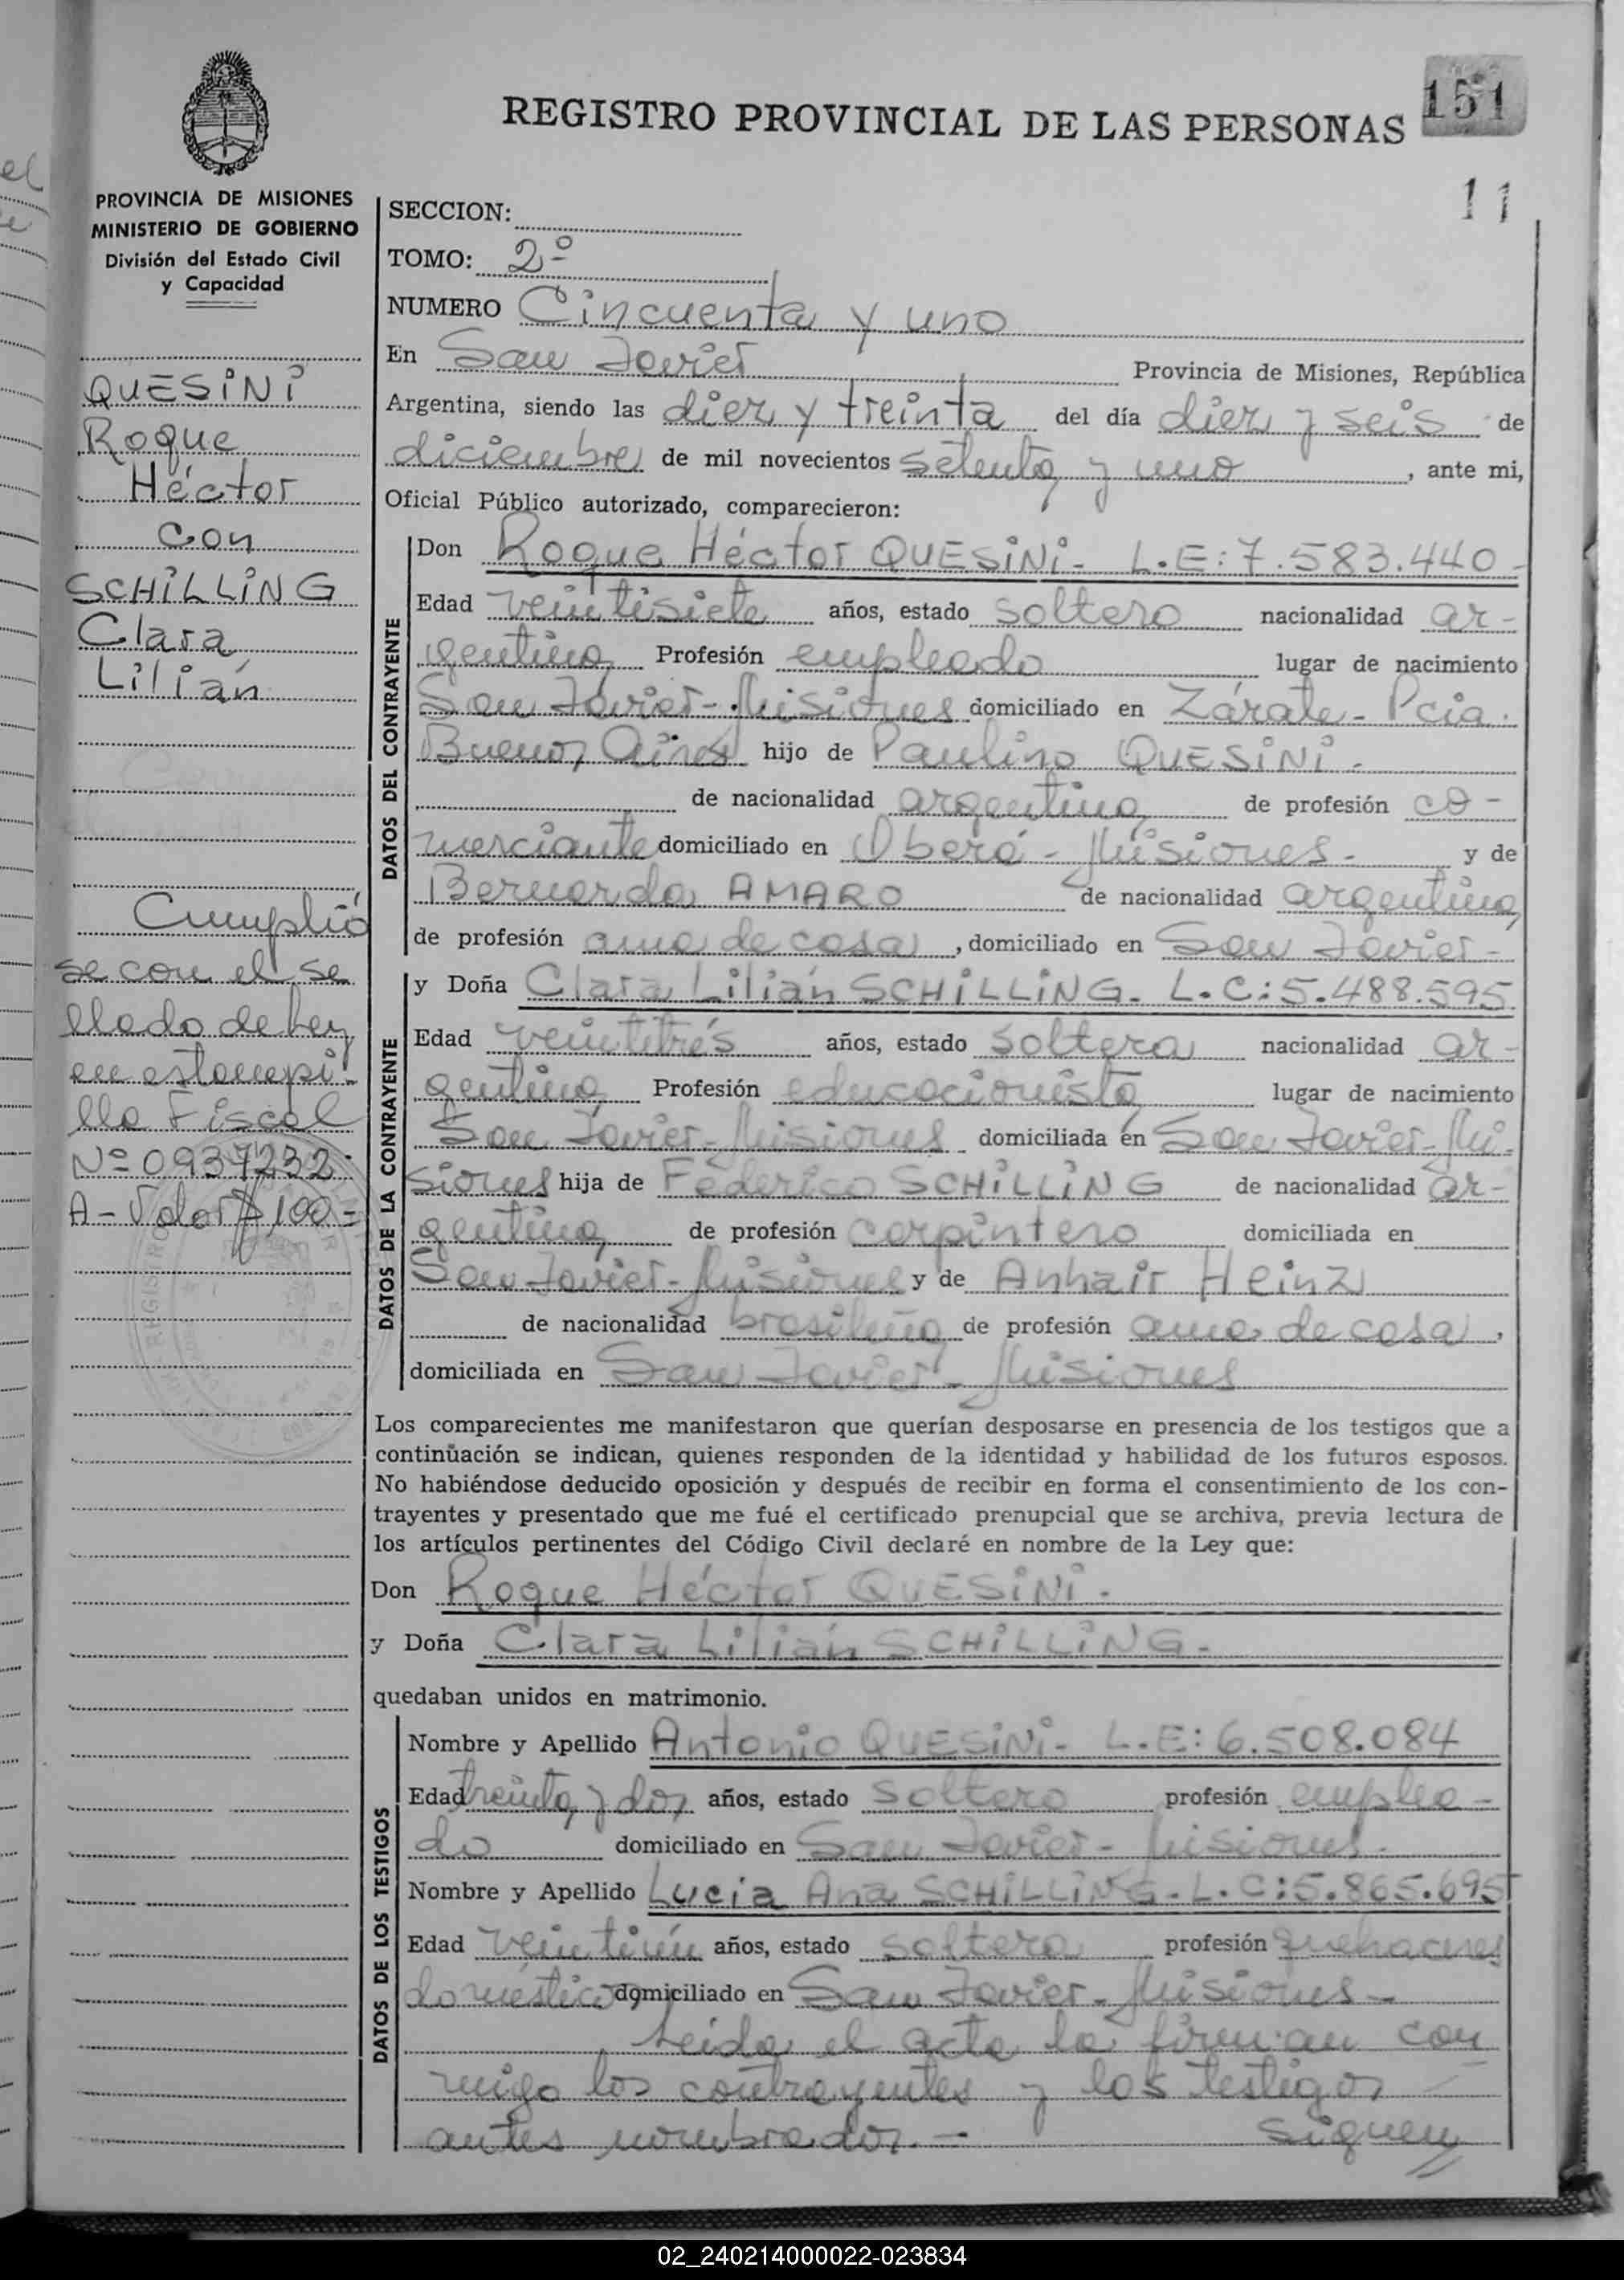 151
REGISTRO PROVINCIAL DE LAS PERSONAS
11
PROVINCIA DE MISIONES
MINISTERIO DE GOBIERNO
División del Estado Civil
y Capacidad
QUESiNi
Roque
Héctor
con
SCHiLLiNG
Clara
Lilián
Cumplió
se con el se
llado de Ley
en estampi-
lla Fiscal
Nº 0937232
A - Valor $ 100 =
SECCION:
TOMO: 2º
NUMERO Cincuenta y uno
En San Javier Provincia de Misiones, República
Argentina, siendo las diez y treinta del día diez y seis de
diciembre de mil novecientos setenta y uno, ante mi,
Oficial Público autorizado, comparecieron:
DATOS DEL CONTRAYENTE
Don Roque Héctor QUESiNi - L.E: 7.583.440 -
Edad veintisiete años, estado soltero nacionalidad ar-
gentina Profesión empleado lugar de nacimiento
San Javier - Misiones domiciliado en Zárate - Pcia.
Buenos Aires hijo de Paulino QUESiNi -
de nacionalidad argentina de profesión co-
merciante domiciliado en Oberá - Misiones - y de
Bernarda AMARO de nacionalidad argentina
de profesión ama de casa, domiciliado en San Javier -
DATOS DE LA CONTRAYENTE
y Doña Clara Lilián SCHiLLiNG - L.C: 5.488.595
Edad veintitrés años, estado soltera nacionalidad ar-
gentina Profesión educacionista lugar de nacimiento
San Javier - Misiones domiciliada en San Javier - Mi-
siones hija de Federico SCHiLLiNG de nacionalidad ar-
gentina de profesión carpintero domiciliada en
San Javier - Misiones y de Anhair Heinz
de nacionalidad brasileña de profesión ama de casa,
domiciliada en San Javier - Misiones
Los comparecientes me manifestaron que querían desposarse en presencia de los testigos que a
continuación se indican, quienes responden de la identidad y habilidad de los futuros esposos.
No habiéndose deducido oposición y después de recibir en forma el consentimiento de los con-
trayentes y presentado que me fué el certificado prenupcial que se archiva, previa lectura de
los artículos pertinentes del Código Civil declaré en nombre de la Ley que:
Don Roque Héctor QUESiNi -
y Doña Clara Lilián SCHiLLiNG -
quedaban unidos en matrimonio.
DATOS DE LOS TESTIGOS
Nombre y Apellido Antonio QUESiNi - L.E: 6.508.084
Edad treinta y dos años, estado soltero profesión emplea-
do domiciliado en San Javier - Misiones -
Nombre y Apellido Lucia Ana SCHiLLiNG - L.C: 5.865.695
Edad veintiún años, estado soltera profesión quehaceres
domésticos domiciliado en San Javier - Misiones -
Leida el acta la firman con
migo los contrayentes y los testigos
antes nombrados. - Siguen
02_240214000022-023834